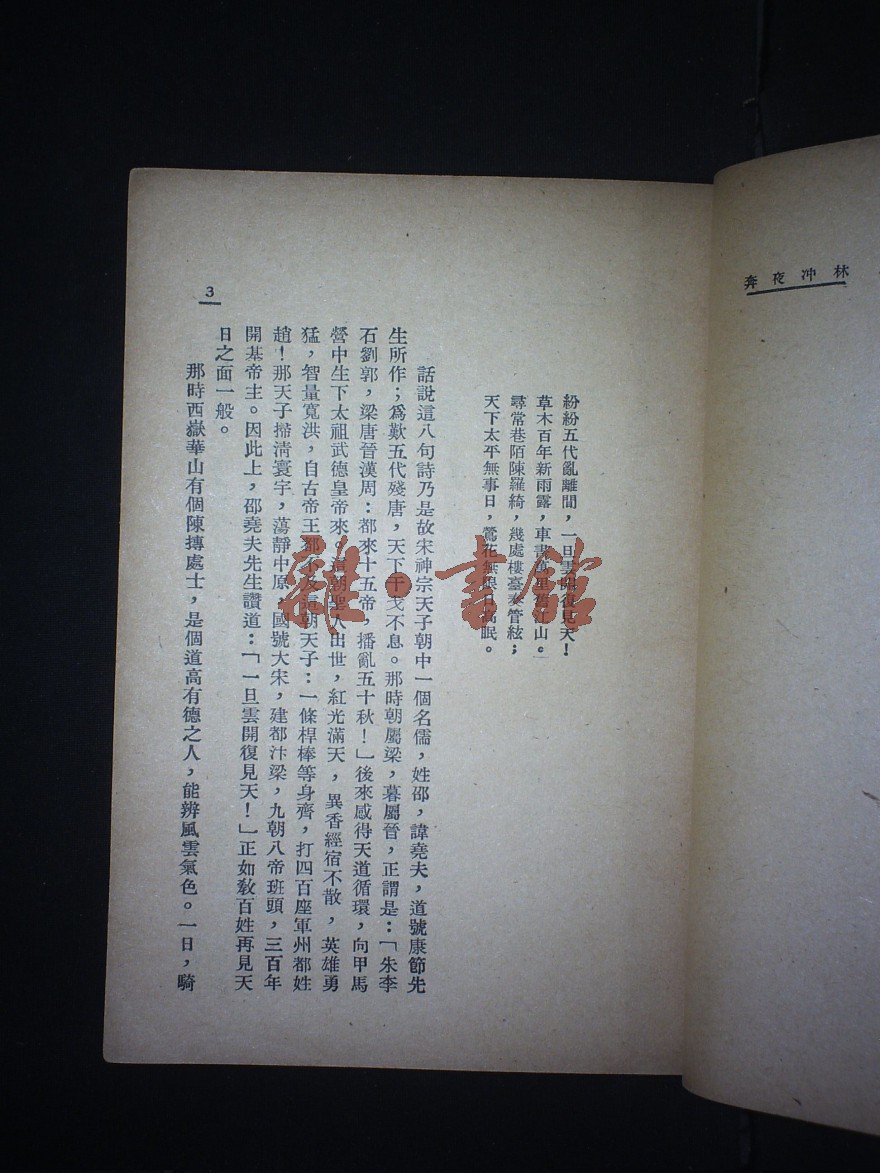 林冲夜奔
紛紛五代亂離間，一旦雲開復見天！
草木百年新雨露，車書萬里舊江山。
尋常巷陌陳羅綺，幾處樓臺奏管絃；
天下太平無事日，鶯花無限日高眠。
話說這八句詩乃是故宋神宗天子朝中一個名儒，姓邵，諱堯夫，道號康節先
生所作；爲歎五代殘唐，天下干戈不息。那時朝屬梁，暮屬晉，正謂是：「朱李
石劉郭，梁唐晉漢周：都來十五帝，播亂五十秋！」後來感得天道循環，向甲馬
營中生下太祖武德皇帝來。這朝聖人出世，紅光滿天，異香經宿不散，英雄勇
猛，智量寬洪，自古帝王都不及這朝天子：一條桿棒等身齊，打四百座軍州都姓
趙！那天子掃清寰宇，蕩靜中原，國號大宋，建都汴梁，九朝八帝班頭，三百年
開基帝主。因此上，邵堯夫先生讚道：「一旦雲開復見天！」正如教百姓再見天
日之面一般。
那時西嶽華山有個陳摶處士，是個道高有德之人，能辨風雲氣色。一日，騎
3
雜·書館